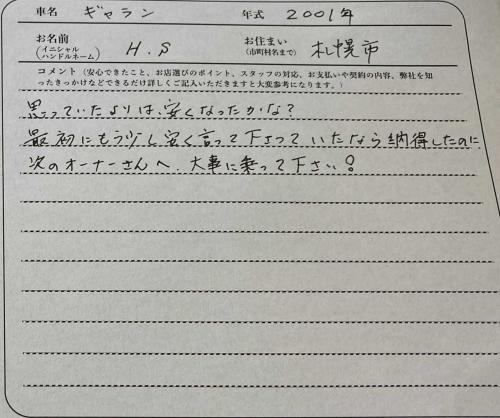 車名 ギャラン 年式 2001年
お名前 (イニシャル ハンドルネーム) H.S お住まい (市町村名まで) 札幌市
コメント (安心できたこと、お店選びのポイント、スタッフの対応、お支払いや契約の内容、弊社を知
ったきっかけなどできるだけ詳しくご記入いただきますと大変参考になります。)
思っていたよりは、安くなったかな?
最初にもう少し安く言って下さっていたなら納得したのに
次のオーナーさんへ、大事に乗って下さい!